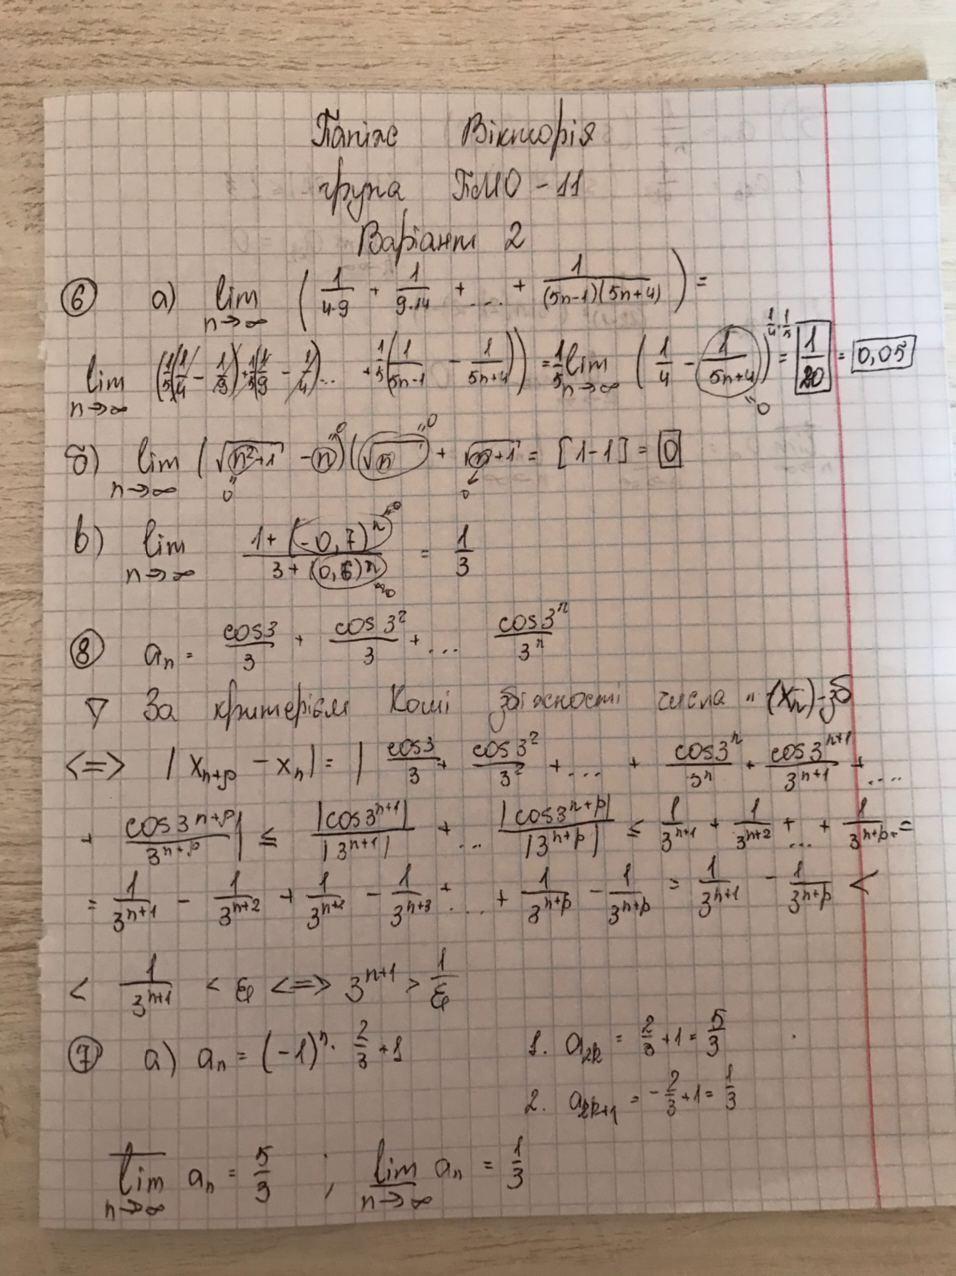 Вікторія
група ПМО - 11
Варіант 2
⑥ а) lim n→∞ ( 1/(4·9) + 1/(9·14) + ... + 1/((5n-1)(5n+4)) ) =
lim n→∞ (1/5(1/4 - 1/9) + 1/5(1/9 - 1/4) ... + 1/5(1/(5n-1) - 1/(5n+4))) = 1/5 lim n→∞ (1/4 - 1/(5n+4)) = 1/4 · 1/5 = 1/20 = 0,05
"0
б) lim n→∞ (√(n²+1) - n)(√n + √(n+1) = [1-1] = 0
в) lim n→∞ (1+(-0,7)ⁿ)/(3+(0,6)ⁿ) = 1/3
⑧ aₙ = cos3/3 + cos3²/3 + ... cos3ⁿ/3ⁿ
▽ За критерієм Коші збіжності числа " (xₙ)-зб
<=> |xₙ₊ₚ - xₙ| = | cos3/3 + cos3²/3² + ... + cos3ⁿ/3ⁿ + cos3ⁿ⁺¹/3ⁿ⁺¹ + ....
+ cos3ⁿ⁺ᵖ/3ⁿ⁺ᵖ | ≤ |cos3ⁿ⁺¹|/|3ⁿ⁺¹| + ... |cos3ⁿ⁺ᵖ|/|3ⁿ⁺ᵖ| ≤ 1/3ⁿ⁺¹ + 1/3ⁿ⁺² + ... + 1/3ⁿ⁺ᵖ =
= 1/3ⁿ⁺¹ - 1/3ⁿ⁺² + 1/3ⁿ⁺² - 1/3ⁿ⁺³ + ... + 1/3ⁿ⁺ᵖ - 1/3ⁿ⁺ᵖ = 1/3ⁿ⁺¹ - 1/3ⁿ⁺ᵖ <
< 1/3ⁿ⁺¹ < ε <=> 3ⁿ⁺¹ > 1/ε
⑦ а) aₙ = (-1)ⁿ · 2/3 + 1 1. a₂ₖ = 2/3 + 1 = 5/3
2. a₂ₖ₊₁ = -2/3 + 1 = 1/3
l̅i̅m̅ n→∞ aₙ = 5/3 ; l̲i̲m̲ n→∞ aₙ = 1/3